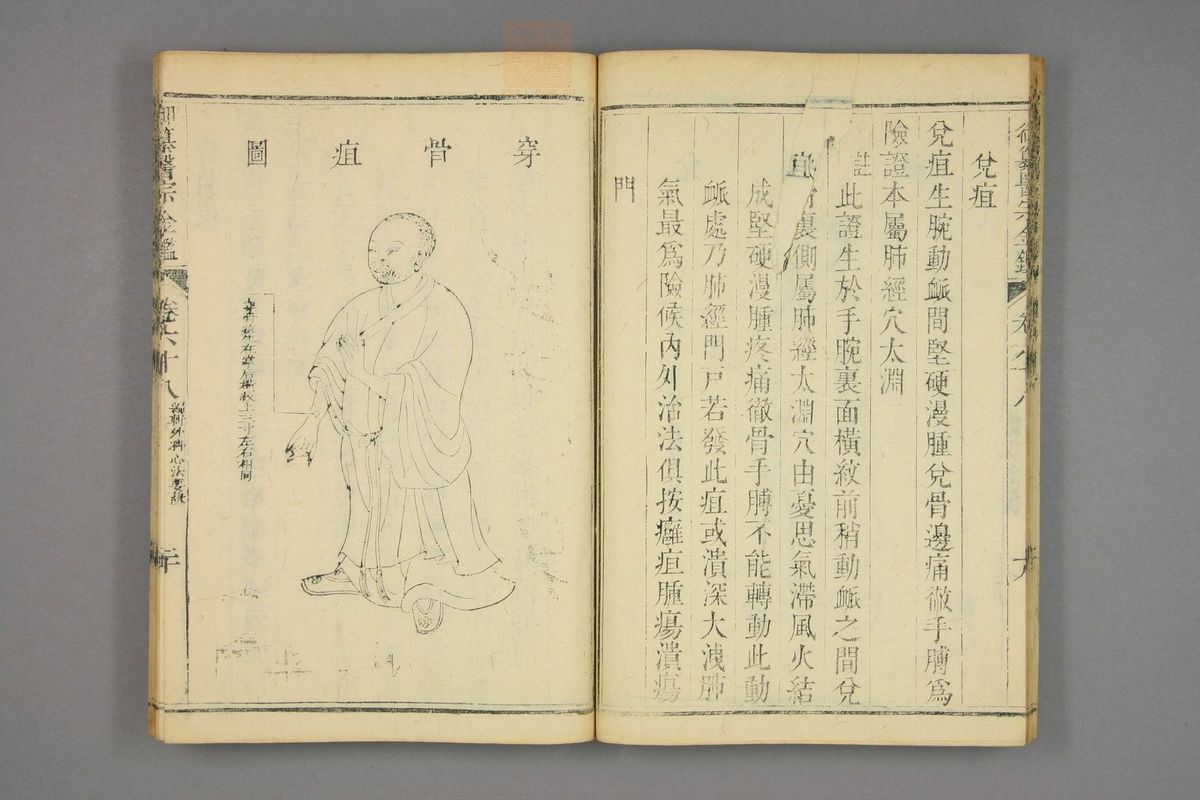 御纂醫宗金鑑
卷六十八
十九
兌疽
兌疽生腕動脈間堅硬漫腫兌骨邊痛徹手膊為
險證本屬肺經穴太淵
註此證生於手腕裏面橫紋前稍動脈之間兌
骨裏側屬肺經太淵穴由憂思氣滯風火結
成堅硬漫腫疼痛徹骨手膊不能轉動此動
脈處乃肺經門戸若發此疽或潰深大洩肺
氣最爲險候內外治法俱按癰疽腫瘍潰瘍
門
穿骨疽圖
穿骨疽生在掌后橫紋上三寸左右相同
御纂醫宗金鑑
卷六十八
編輯外科心法要訣
二十